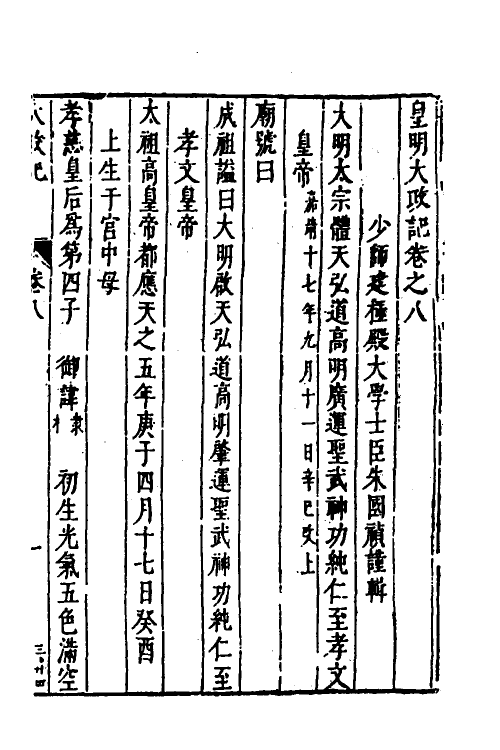 皇明大政記卷之八
少師建極殿大學士臣朱國禎謹輯
大明太宗體天弘道高明廣運聖武神功純仁至孝文
皇帝嘉靖十七年九月十一日辛巳改上
廟號曰
成祖謚曰大明啟天弘道高明肇運聖武神功純仁至
孝文皇帝
太祖高皇帝都應天之五年庚子四月十七日癸酉
上生于宮中母
孝慈皇后爲第四子　御諱棣　初生光氣五色滿空
大政記　卷八　一